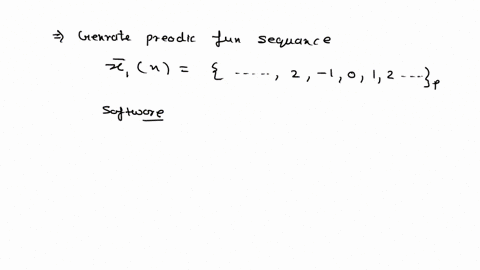 ⇒ Genrote preodic fun sequance
x̄₁(n) = { ....., 2, -1, 0, 1, 2 ---}ₚ
Software